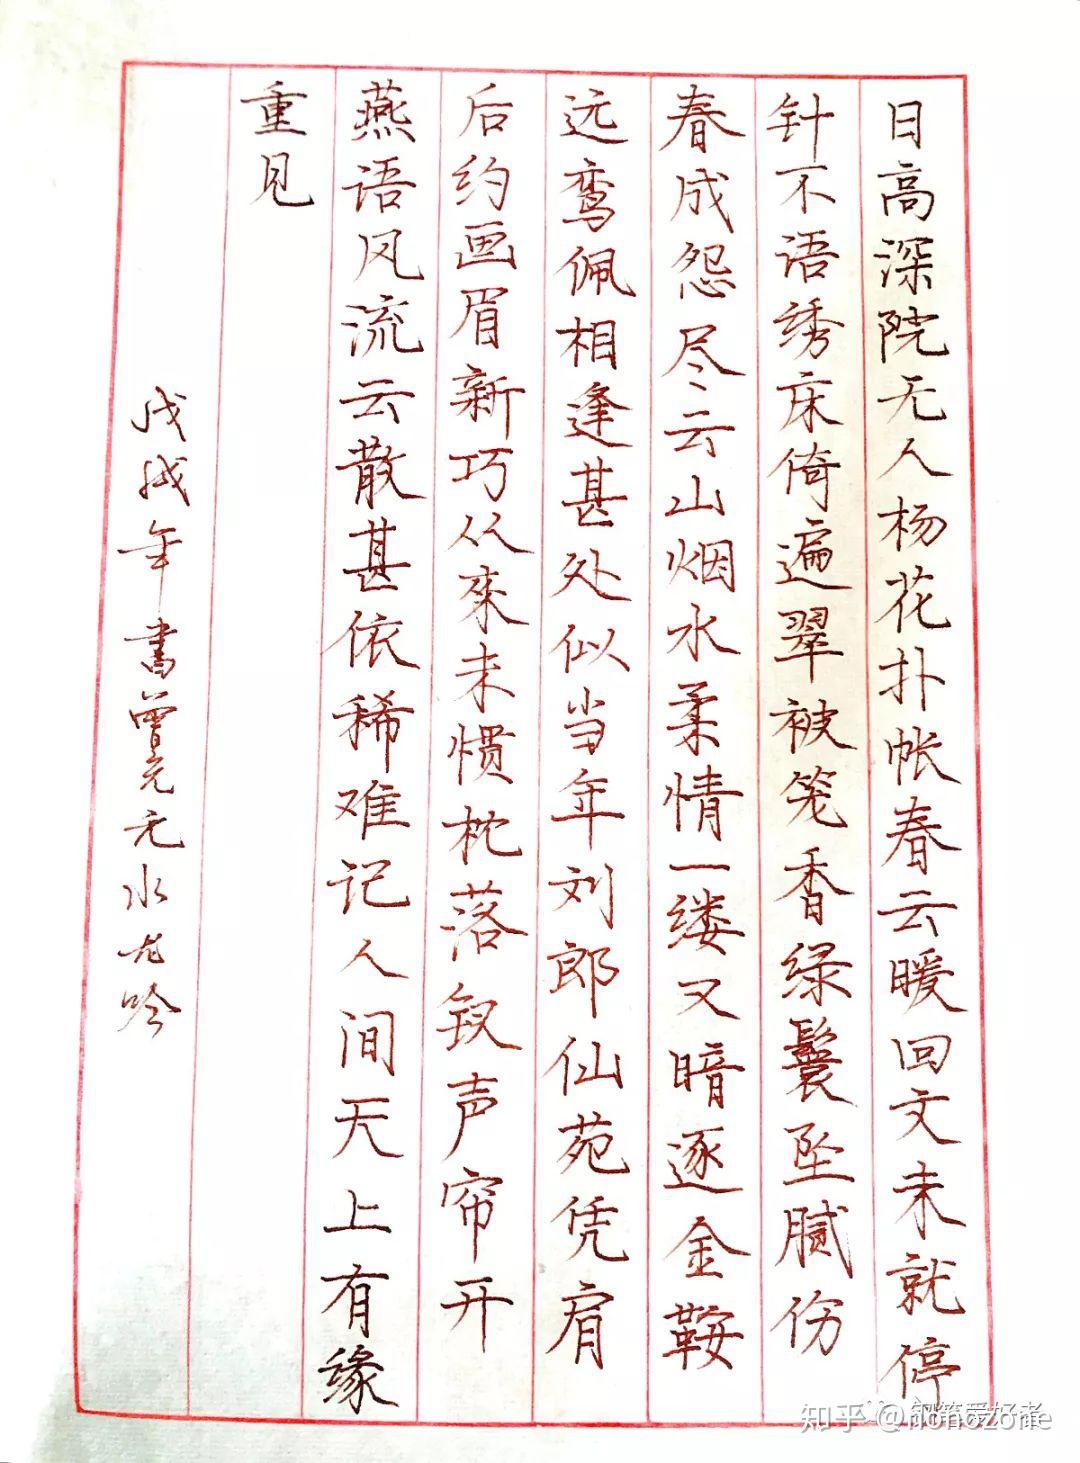 日高深院无人杨花扑帐春云暖回文未就停
针不语绣床倚遍翠被笼香绿鬟坠腻伤
春成怨尽云山烟水柔情一缕又暗逐金鞍
远鸾佩相逢甚处似当年刘郎仙苑凭肩
后约画眉新巧从来未惯枕落钗声帘开
燕语风流云散甚依稀难记人间天上有缘
重见
戊戌年书曾允元水龙吟
知乎 @nonozone